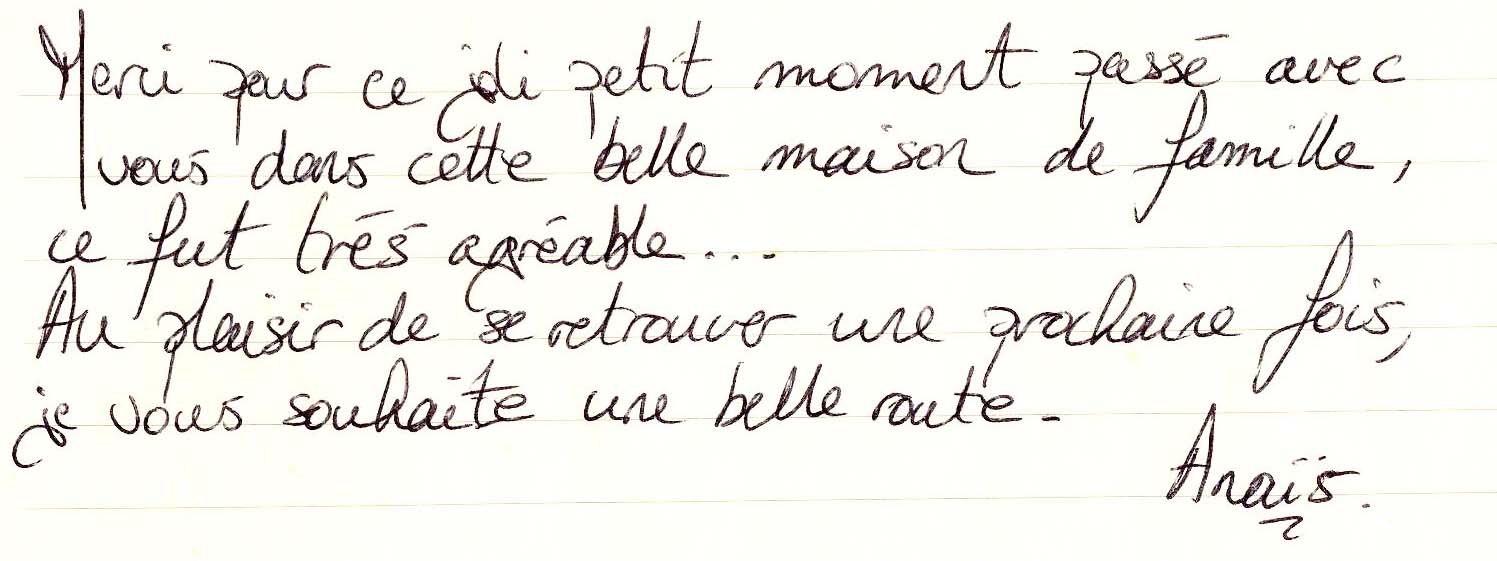 Merci pour ce joli petit moment passé avec
vous dans cette belle maison de famille,
ce fut très agréable...
Au plaisir de se retrouver une prochaine fois,
je vous souhaite une belle route.
Anaïs.